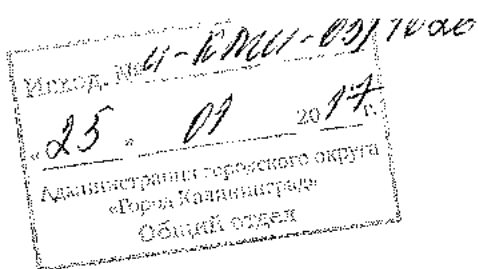 Исход. № и-КМИ-09/
«25» 01 2017 г.
Администрации городского округа
«Город Калининград»
Общий отдел